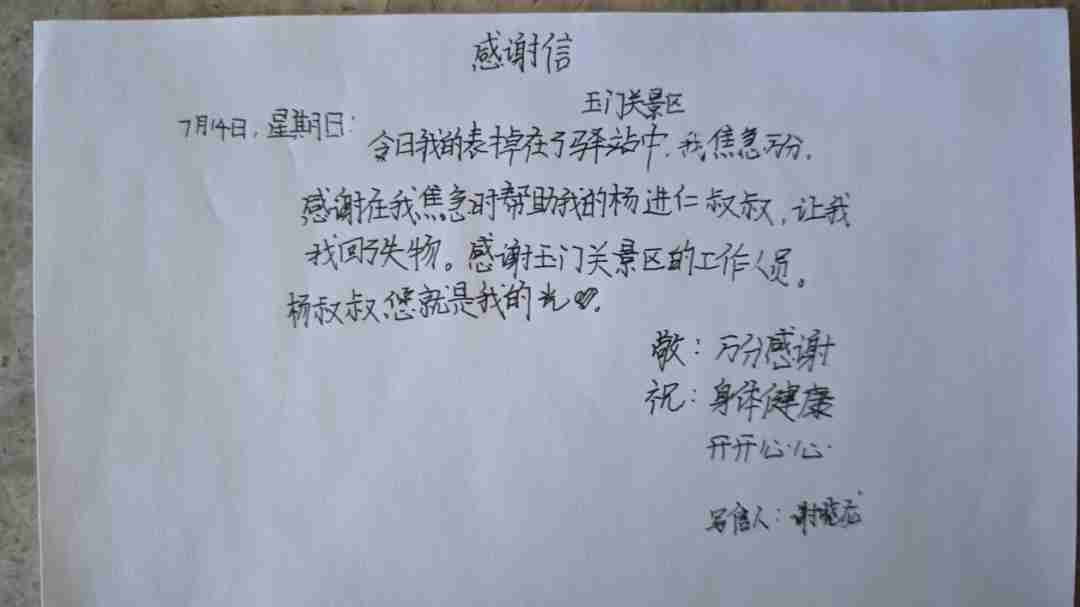 感谢信
玉门关景区
7月14日,星期日:
今日我的表掉在了驿站中,我焦急万分,
感谢在我焦急时帮助我的杨进仁叔叔,让我
找回了失物。感谢玉门关景区的工作人员。
杨叔叔,您就是我的光♡.
敬:万分感谢
祝:身体健康
开开心心
写信人:谢